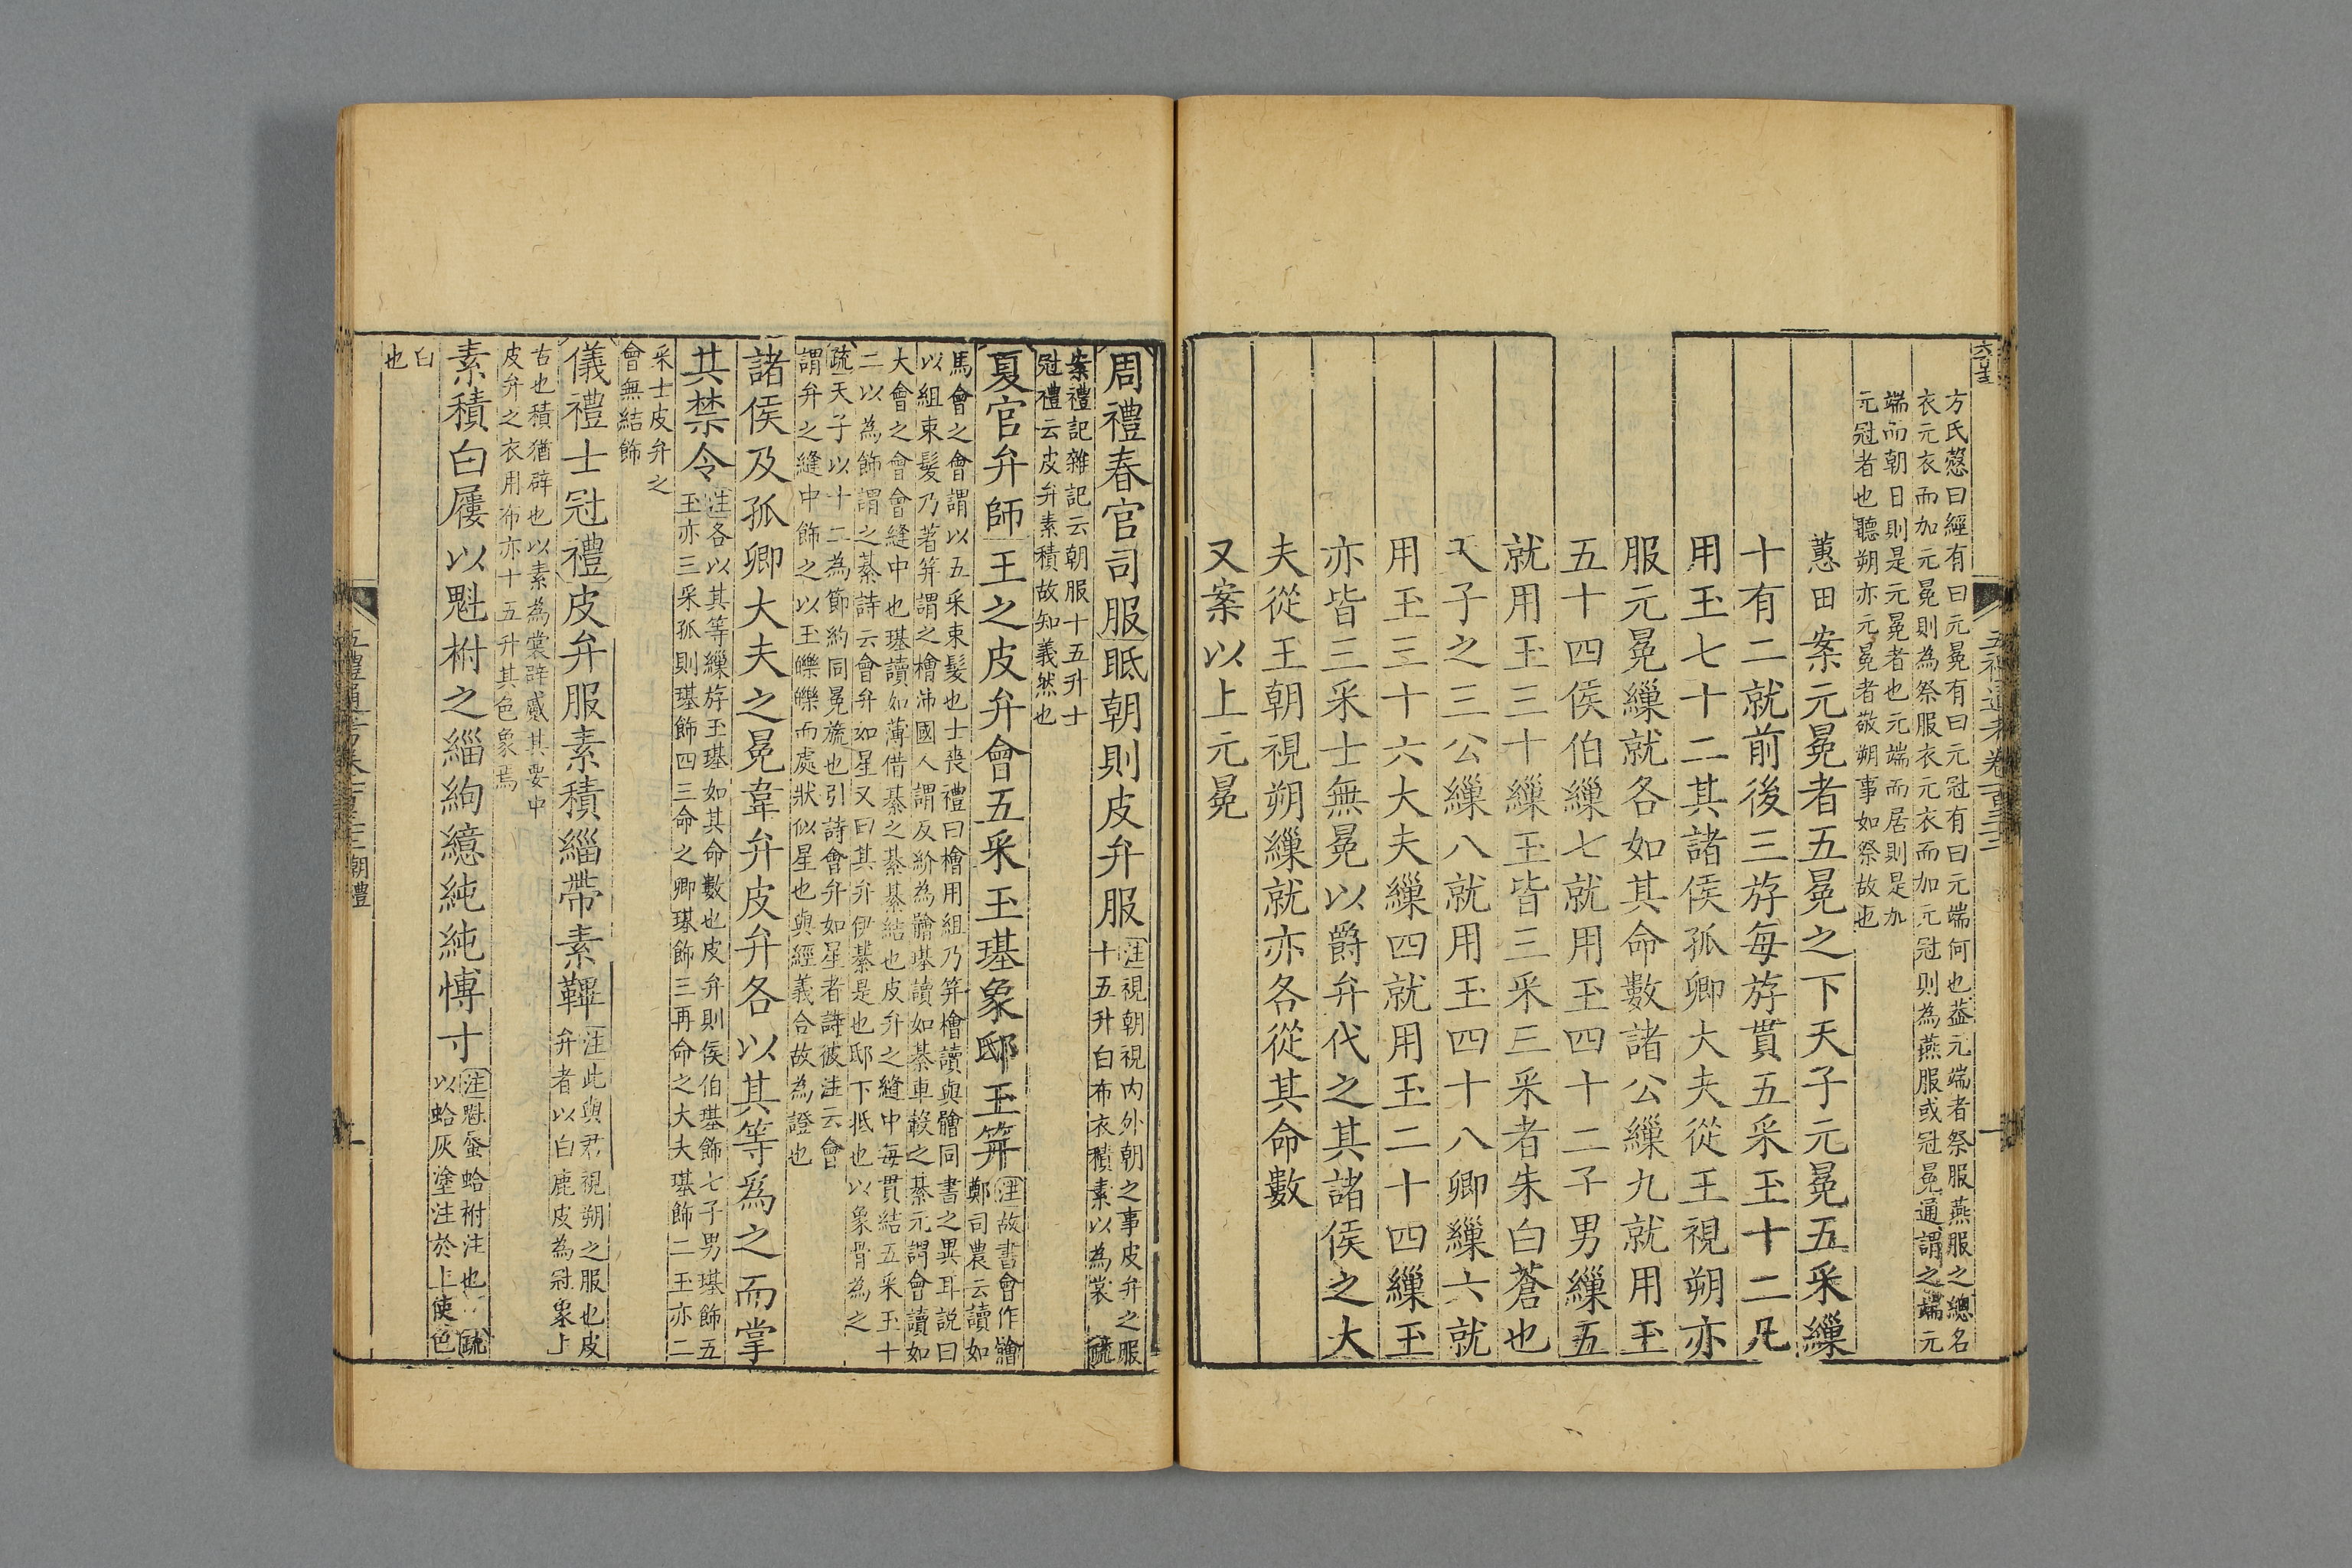 方氏慤曰經有曰元冕有曰元冠有曰元端何也葢元端者祭服燕服之總名
衣元衣而加元冕則為祭服衣元衣而加元冠則為燕服或冠冕通謂之端元
端而朝日則是元冕者也元端而居則是加
元冠者也聽朔亦元冕者敬朔事如祭故也
蕙田案元冕者五冕之下天子元冕五采繅
十有二就前後三斿每斿貫五采玉十二凡
用玉七十二其諸侯孤卿大夫從王視朔亦
服元冕繅就各如其命數諸公繅九就用玉
五十四侯伯繅七就用玉四十二子男繅五
就用玉三十繅玉皆三采三采者朱白蒼也
天子之三公繅八就用玉四十八卿繅六就
用玉三十六大夫繅四就用玉二十四繅玉
亦皆三采士無冕以爵弁代之其諸侯之大
夫從王朝視朔繅就亦各從其命數
又案以上元冕
周禮春官司服眡朝則皮弁服
注視朝視內外朝之事皮弁之服
十五升白布衣積素以為裳 疏
案禮記雜記云朝服十五升士
冠禮云皮弁素積故知義然也
夏官弁師王之皮弁會五采玉璂象邸玉笄
注故書會作䯤
鄭司農云讀如
馬會之會謂以五采束髮也士喪禮曰檜用組乃笄檜讀與䯤同書之異耳說曰
以組束髮乃著笄謂之檜沛國人謂反紒為䯤璂讀如綦車轂之綦元謂會讀如
大會之會會縫中也璂讀如薄借綦之綦綦結也皮弁之縫中每貫結五采玉十
二以為飾謂之綦詩云會弁如星又曰其弁伊綦是也邸下抵也以象骨為之
疏天子以十二為節約同冕旒也引詩會弁如星者詩彼注云會
謂弁之縫中飾之以玉皪皪而處狀似星也與經義合故為證也
諸侯及孤卿大夫之冕韋弁皮弁各以其等為之而掌
其禁令
注各以其等繅斿玉璂如其命數也皮弁則侯伯璂飾七子男璂飾五
玉亦三采孤則璂飾四三命之卿璂飾三再命之大夫璂飾二玉亦二
采士皮弁之
會無結飾
儀禮士冠禮皮弁服素積緇帶素韠
注此與君視朔之服也皮
弁者以白鹿皮為冠象上
古也積猶辟也以素為裳辟蹙其要中
皮弁之衣用布亦十五升其色象焉
素積白屨以魁柎之緇絇繶純純博寸
注魁蜃蛤柎注也 疏
以蛤灰塗注於上使色
白
也
五禮通考卷一百三十二 朝禮